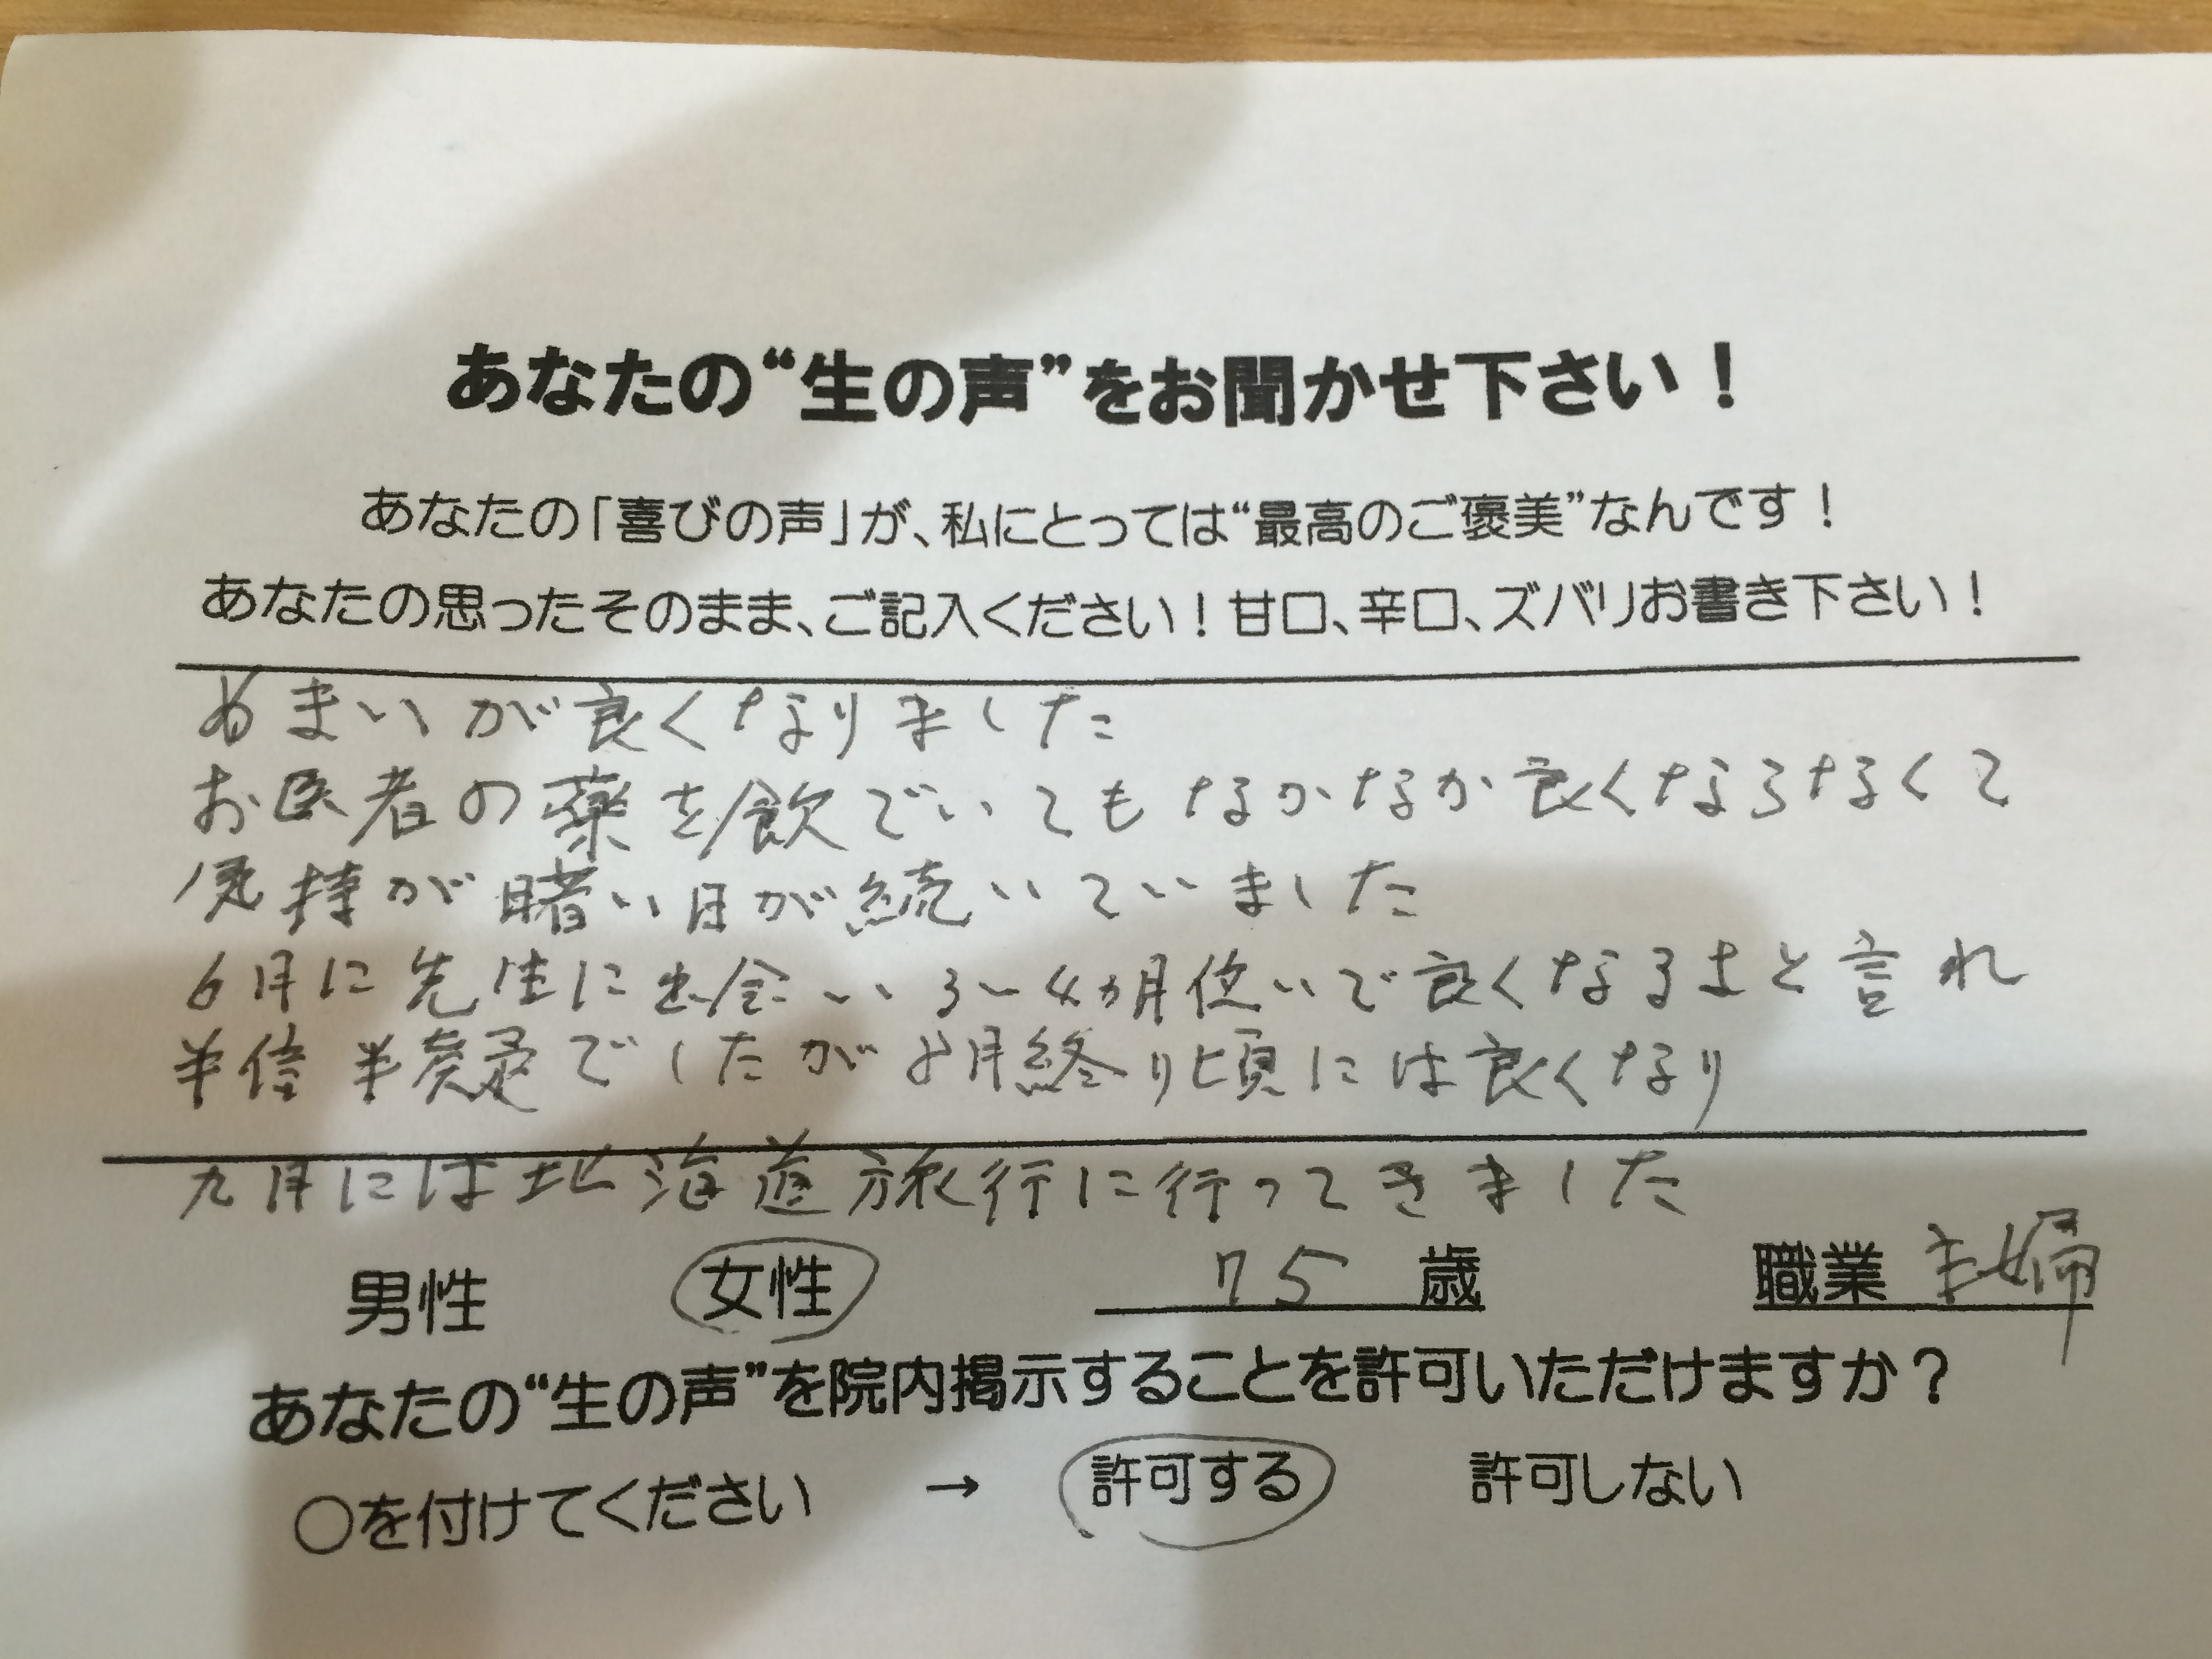 あなたの“生の声”をお聞かせ下さい！
あなたの「喜びの声」が、私にとっては“最高のご褒美”なんです！
あなたの思ったそのまま、ご記入ください！甘口、辛口、ズバリお書き下さい！
めまいが良くなりました
お医者の薬を飲でいてもなかなか良くならなくて
気持が暗い日が続いていました
6月に先生に出会い3〜4ヵ月位いで良くなるよと言れ
半信半疑でしたが8月終り頃には良くなり
九月には北海道旅行に行ってきました
男性 女性 75歳 職業 主婦
あなたの“生の声”を院内掲示することを許可いただけますか？
○を付けてください → 許可する 許可しない